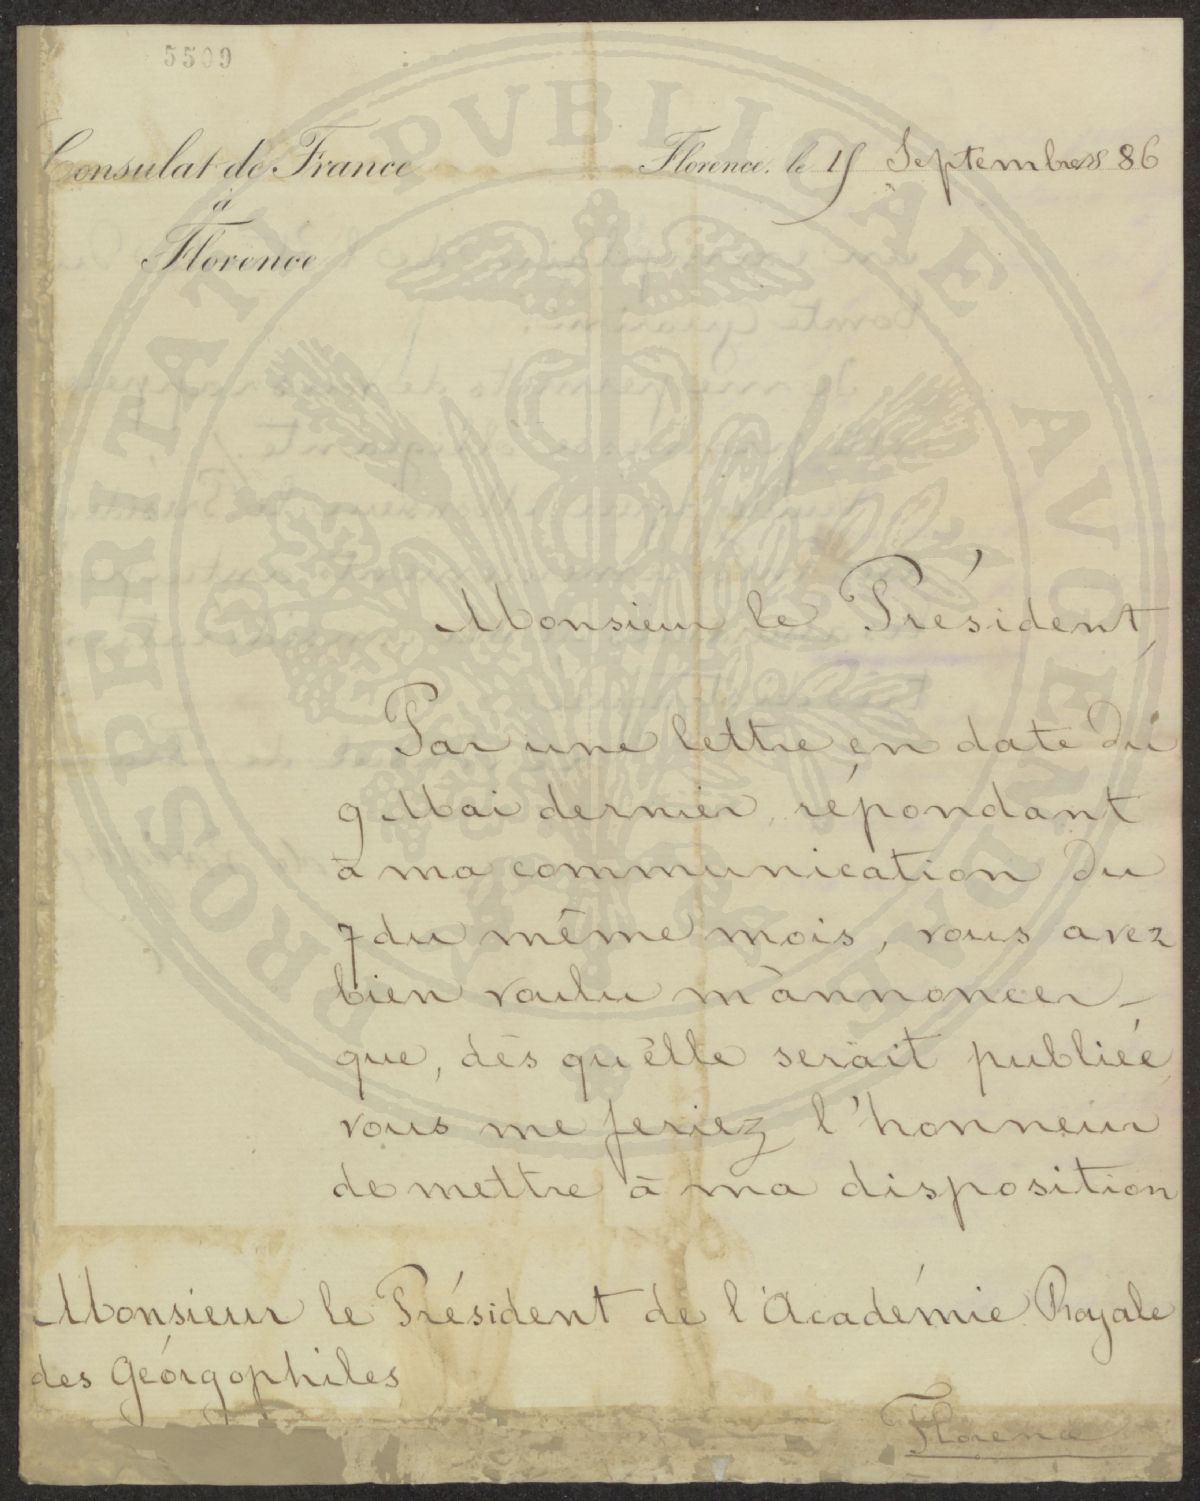 5509
Consulat de France
à
Florence
Florence, le 15 Septembre 1886
Monsieur le Président,
Par une lettre en date du
9 Mai dernier, répondant
à ma communication du
7 du même mois, vous avez
bien voulu m'annoncer
que, dès qu'elle serait publiée,
vous me feriez l'honneur
de mettre à ma disposition
Monsieur le Président de l'Académie Royale
des Géorgophiles
Florence
PROSPERITATI PVBLICAE AVGENDAE